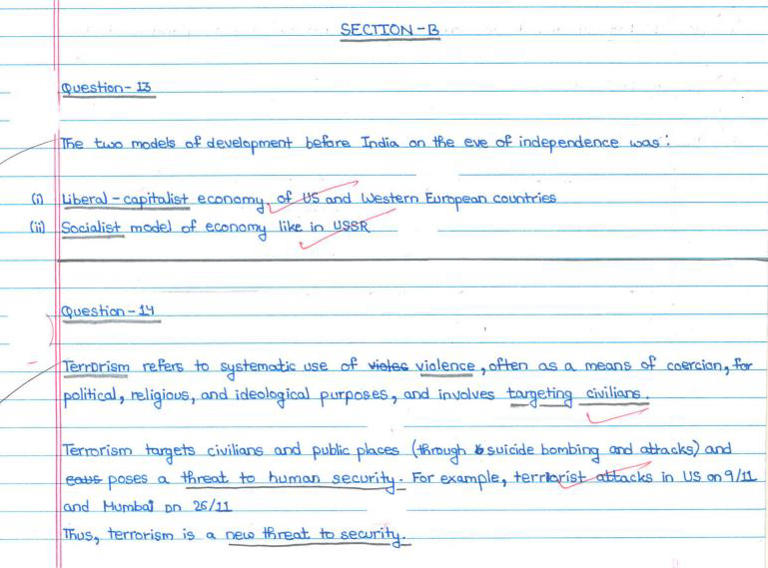 SECTION-B
Question-13
The two models of development before India on the eve of independence was:
(i) Liberal-capitalist economy, of US and Western European countries
(ii) Socialist model of economy like in USSR
Question-14
Terrorism refers to systematic use of violes violence, often as a means of coercion, for
political, religious, and ideological purposes, and involves targeting civilians.
Terrorism targets civilians and public places (through suicide bombing and attacks) and
caus poses a threat to human security. For example, terriorist attacks in US on 9/11
and Mumbai on 26/11
Thus, terrorism is a new threat to security.